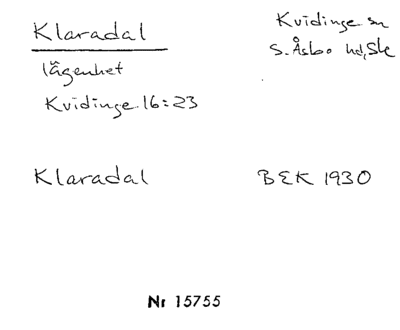 Klaradal
Kvidinge sn
S. Åsbo hd, Sk
lägenhet
Kvidinge 16:23
Klaradal
BEK 1930
Nr 15755